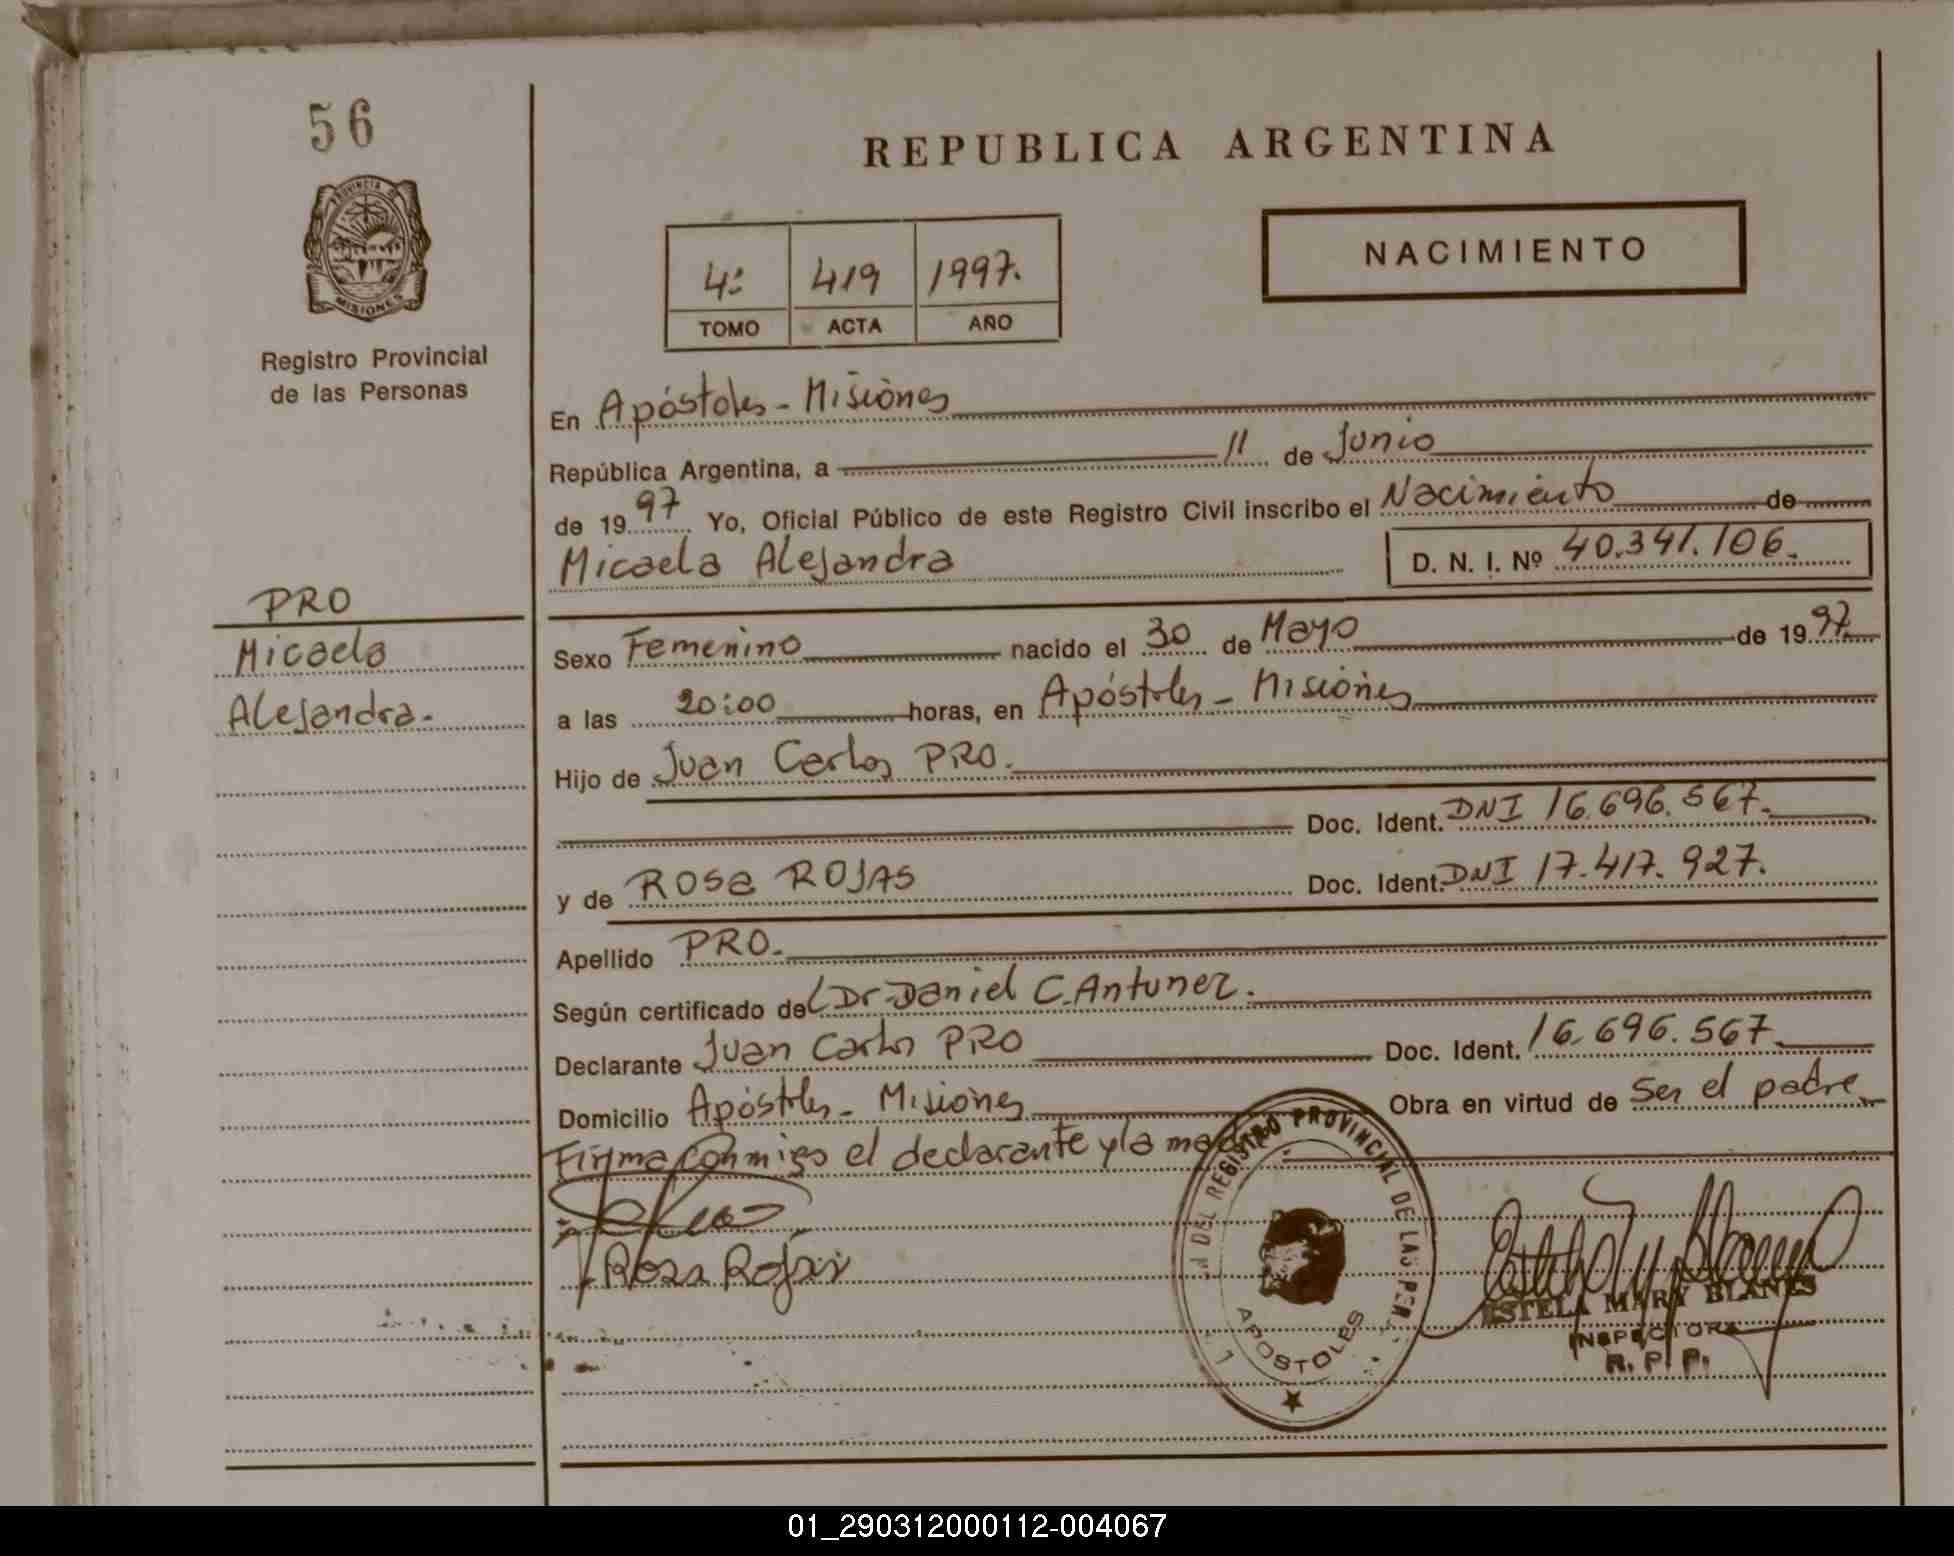 56
PROVINCIA DE
MISIONES
Registro Provincial
de las Personas
PRO
Micaela
Alejandra.
REPUBLICA ARGENTINA
4º 419 1997.
TOMO ACTA AÑO
NACIMIENTO
En Apóstoles - Misiones
República Argentina, a 11 de Junio
de 1997 Yo, Oficial Público de este Registro Civil inscribo el Nacimiento de
Micaela Alejandra D. N. I. Nº 40.341.106.
Sexo Femenino nacido el 30 de Mayo de 1997
a las 20:00 horas, en Apóstoles - Misiones
Hijo de Juan Carlos PRO.
Doc. Ident. DNI 16.696.567.
y de Rosa ROJAS Doc. Ident. DNI 17.417.927.
Apellido PRO.
Según certificado del Dr. Daniel C. Antunez.
Declarante Juan Carlos PRO Doc. Ident. 16.696.567
Domicilio Apóstoles - Misiones Obra en virtud de Ser el padre
Firma conmigo el declarante y la madre
Rosa Rojas
DEL REGISTRO PROVINCIAL DE LAS PER
APOSTOLES
ESTELA MARY BLANES
INSPECTORA
R. P. P.
01_290312000112-004067